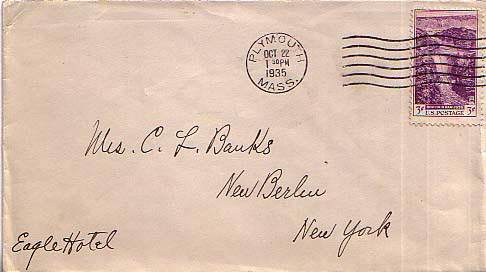 PLYMOUTH
OCT 22
1 30PM
1935
MASS.
3¢ U.S. POSTAGE 3¢
Mrs. C. L. Banks
New Berlin
New York
Eagle Hotel